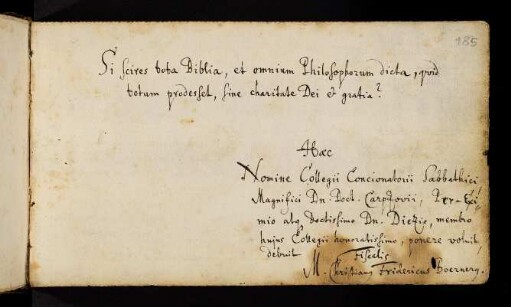 185
Si scires tota Biblia, et omnium Philosophorum dicta, quid
totum prodesset, sine charitate Dei et gratia?
Haec
Nomine Collegii Concionatorii Sabbathici
Magnifici Dn. Doct. Carpzovii, Per-Exi-
mio atq doctissimo Dn. Diezio, membro
hujus Collegii honoratissimo, ponere voluit,
debuit
M. Christianus Fridericus Boerner.